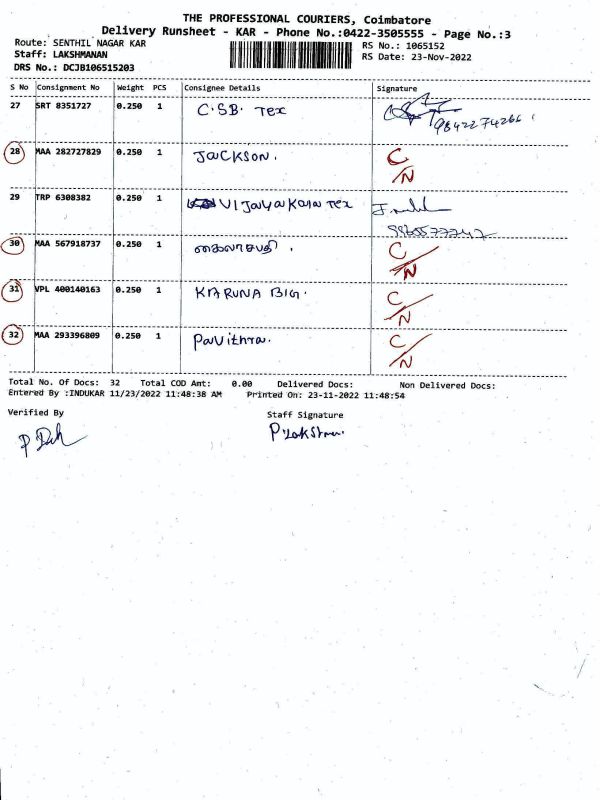 THE PROFESSIONAL COURIERS, Coimbatore
Delivery Runsheet - KAR - Phone No.:0422-3505555 - Page No.:3
Route: SENTHIL NAGAR KAR
RS No.: 1065152
Staff: LAKSHMANAN
RS Date: 23-Nov-2022
DRS No.: DCJB106515203
S No Consignment No Weight PCS Consignee Details Signature
27 SRT 8351727 0.250 1 C.SB. Tex
9842274266.
28 MAA 282727829 0.250 1 JACKSON. C/N
29 TRP 6308382 0.250 1 Vijayakala Tex
30 MAA 567918737 0.250 1 கைலாசபதி . C/N
31 VPL 400140163 0.250 1 KARUNA BIG. C/N
32 MAA 293396809 0.250 1 Pavithra. C/N
Total No. Of Docs: 32 Total COD Amt: 0.00 Delivered Docs: Non Delivered Docs:
Entered By :INDUKAR 11/23/2022 11:48:38 AM Printed On: 23-11-2022 11:48:54
Verified By Staff Signature